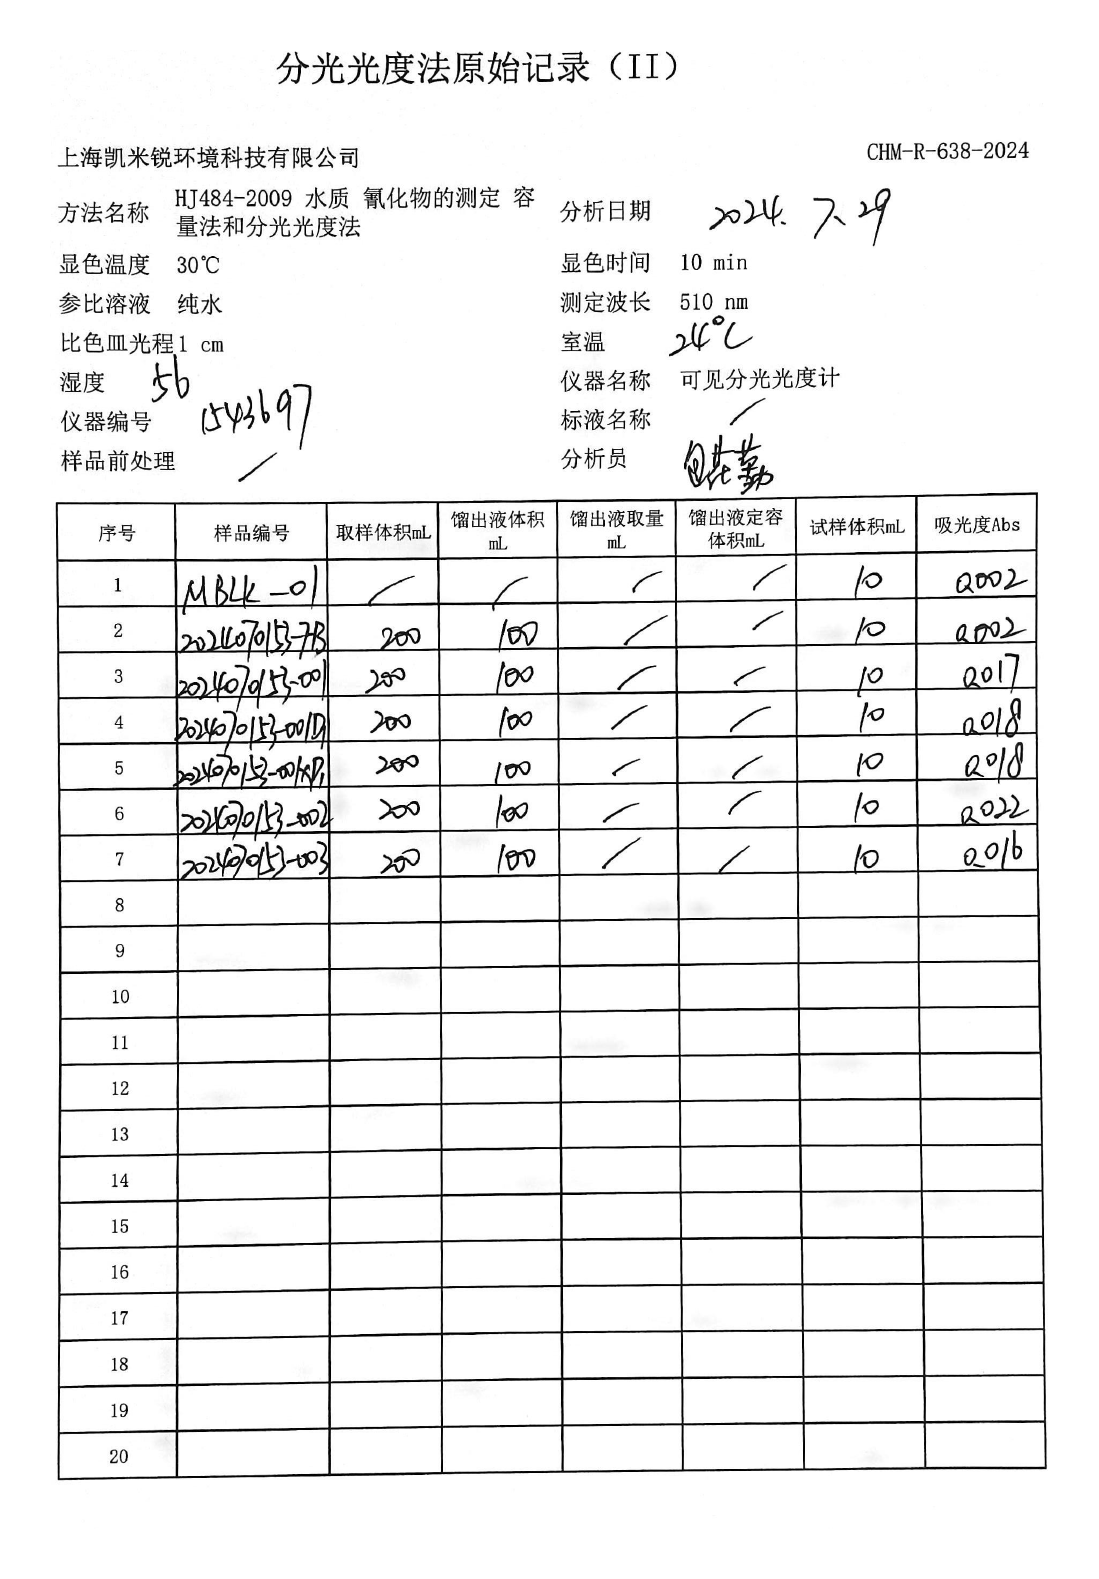 分光光度法原始记录（II）
上海凯米锐环境科技有限公司 CHM-R-638-2024
方法名称 HJ484-2009 水质 氰化物的测定 容量法和分光光度法 分析日期 2024.7.29
显色温度 30℃ 显色时间 10 min
参比溶液 纯水 测定波长 510 nm
比色皿光程 1 cm 室温 24℃
湿度 56 仪器名称 可见分光光度计
仪器编号 1543697 标液名称 /
样品前处理 / 分析员
序号 样品编号 取样体积mL 馏出液体积mL 馏出液取量mL 馏出液定容体积mL 试样体积mL 吸光度Abs
1 MBLK-01 / / / / 10 0.002
2 200 100 / / 10 0.002
3 2024070153-001 200 100 / / 10 0.017
4 2024070153-001D1 200 100 / / 10 0.018
5 200 100 / / 10 0.018
6 2024070153-002 200 100 / / 10 0.022
7 2024070153-003 200 100 / / 10 0.016
8
9
10
11
12
13
14
15
16
17
18
19
20